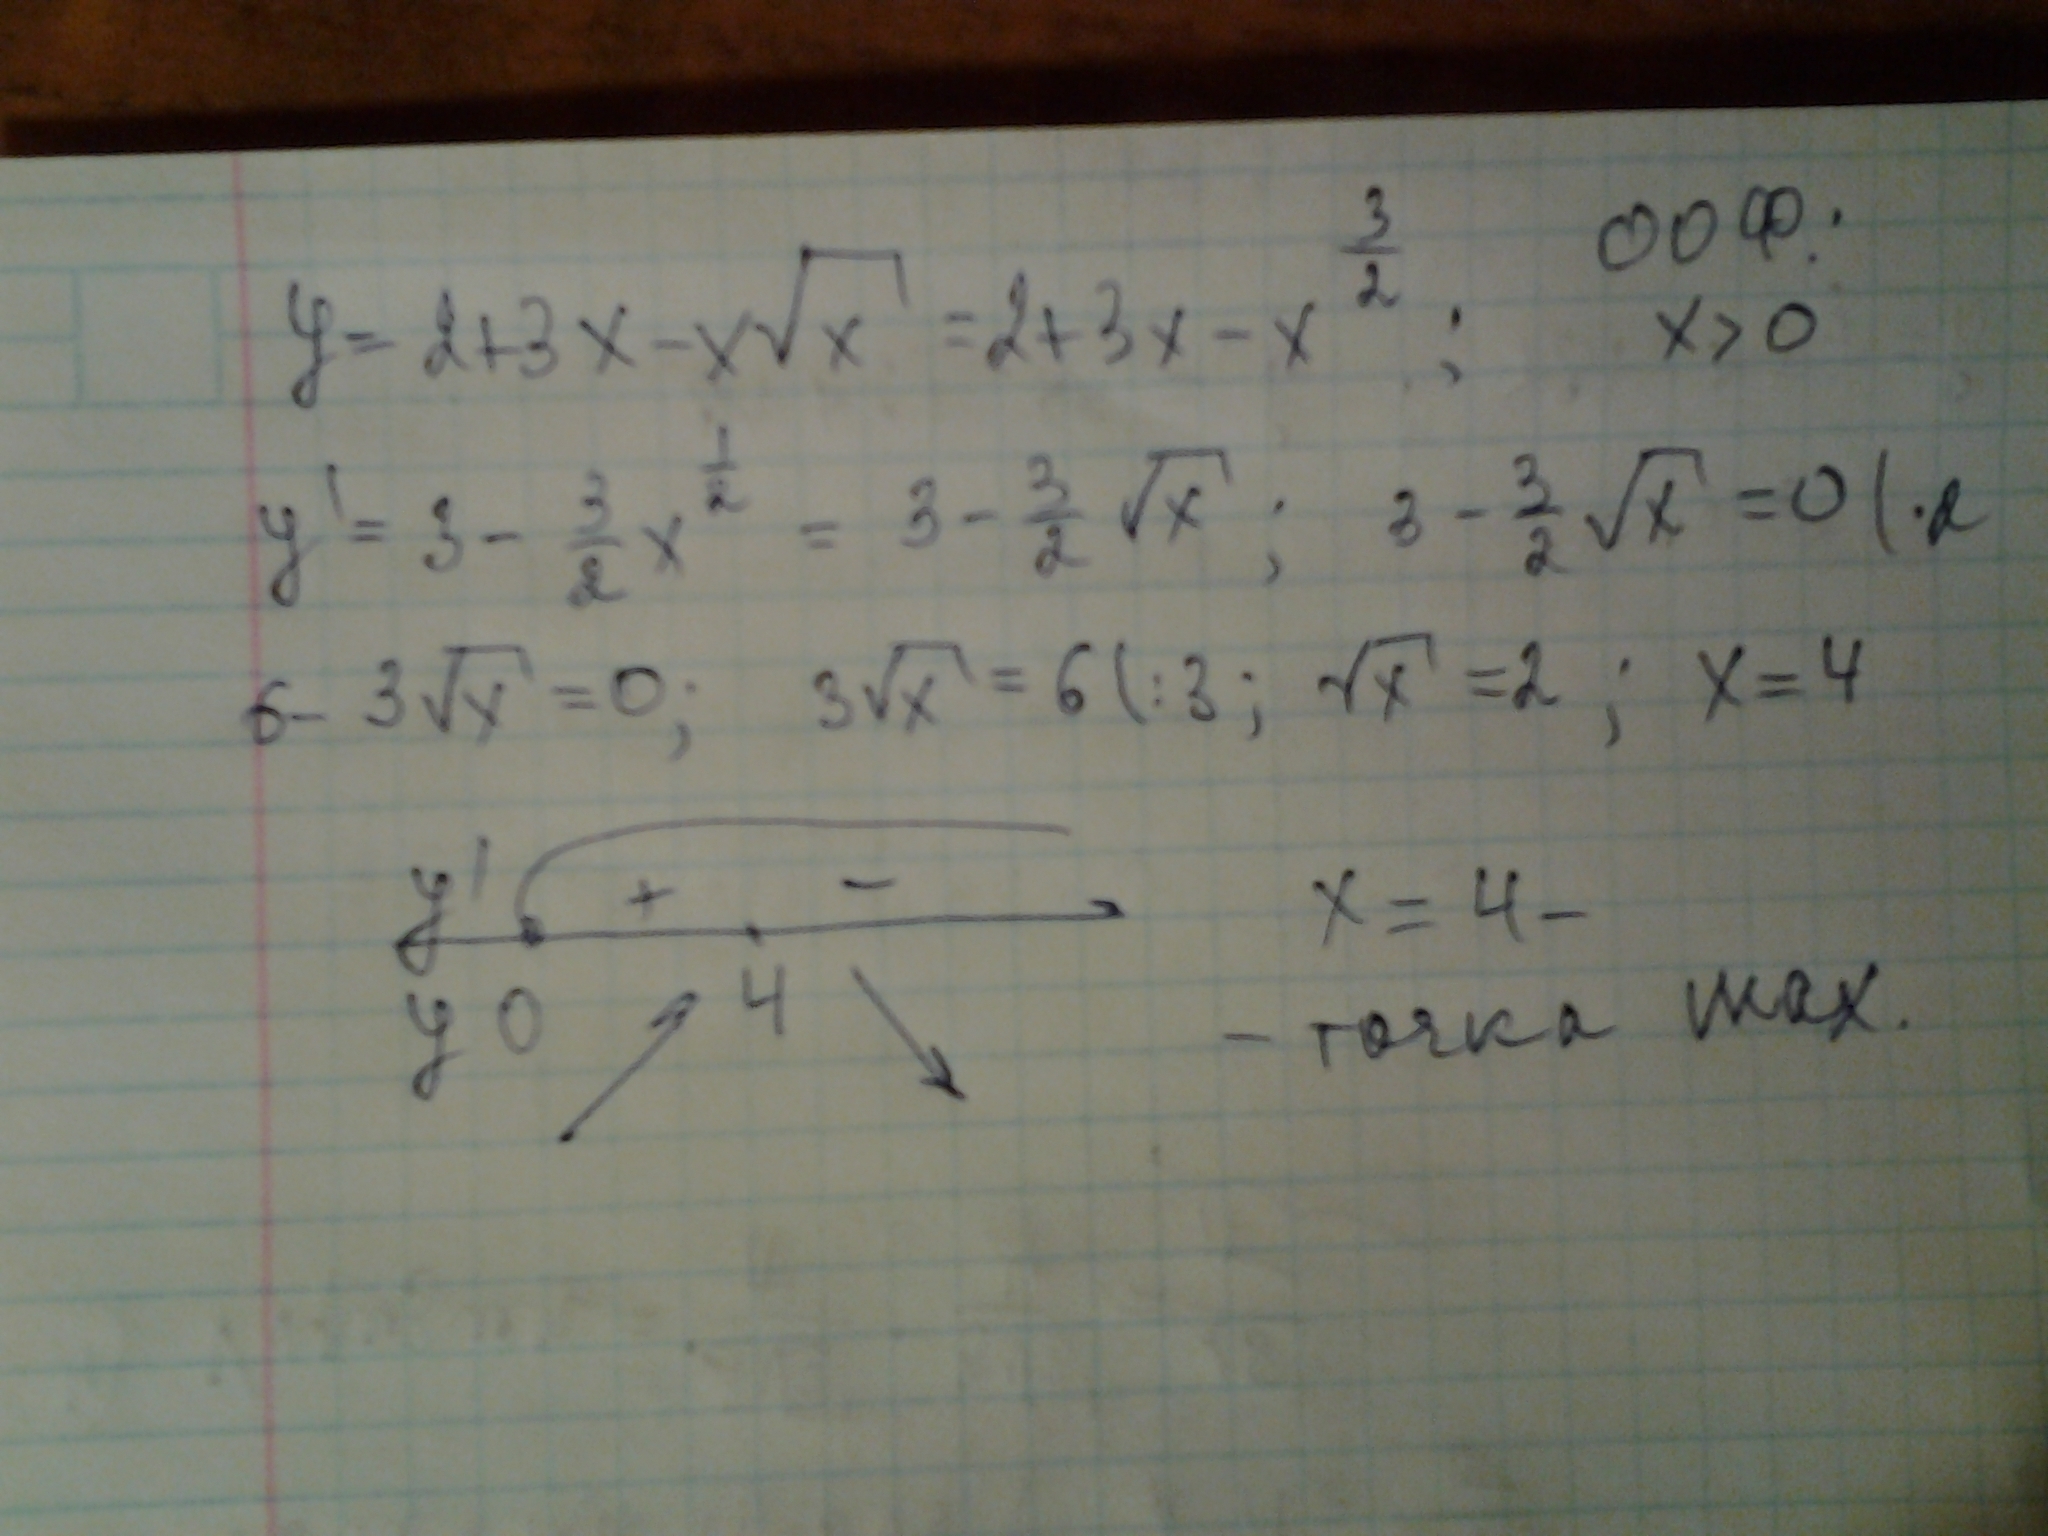 y = 2+3x-x√x = 2+3x-x^(3/2); ООФ:
x>0
y' = 3 - 3/2 x^(1/2) = 3 - 3/2 √x; 3 - 3/2 √x = 0 (·2
6 - 3√x = 0; 3√x = 6 (:3; √x = 2; x = 4
y' + -
y 0 4
x = 4 -
- точка max.